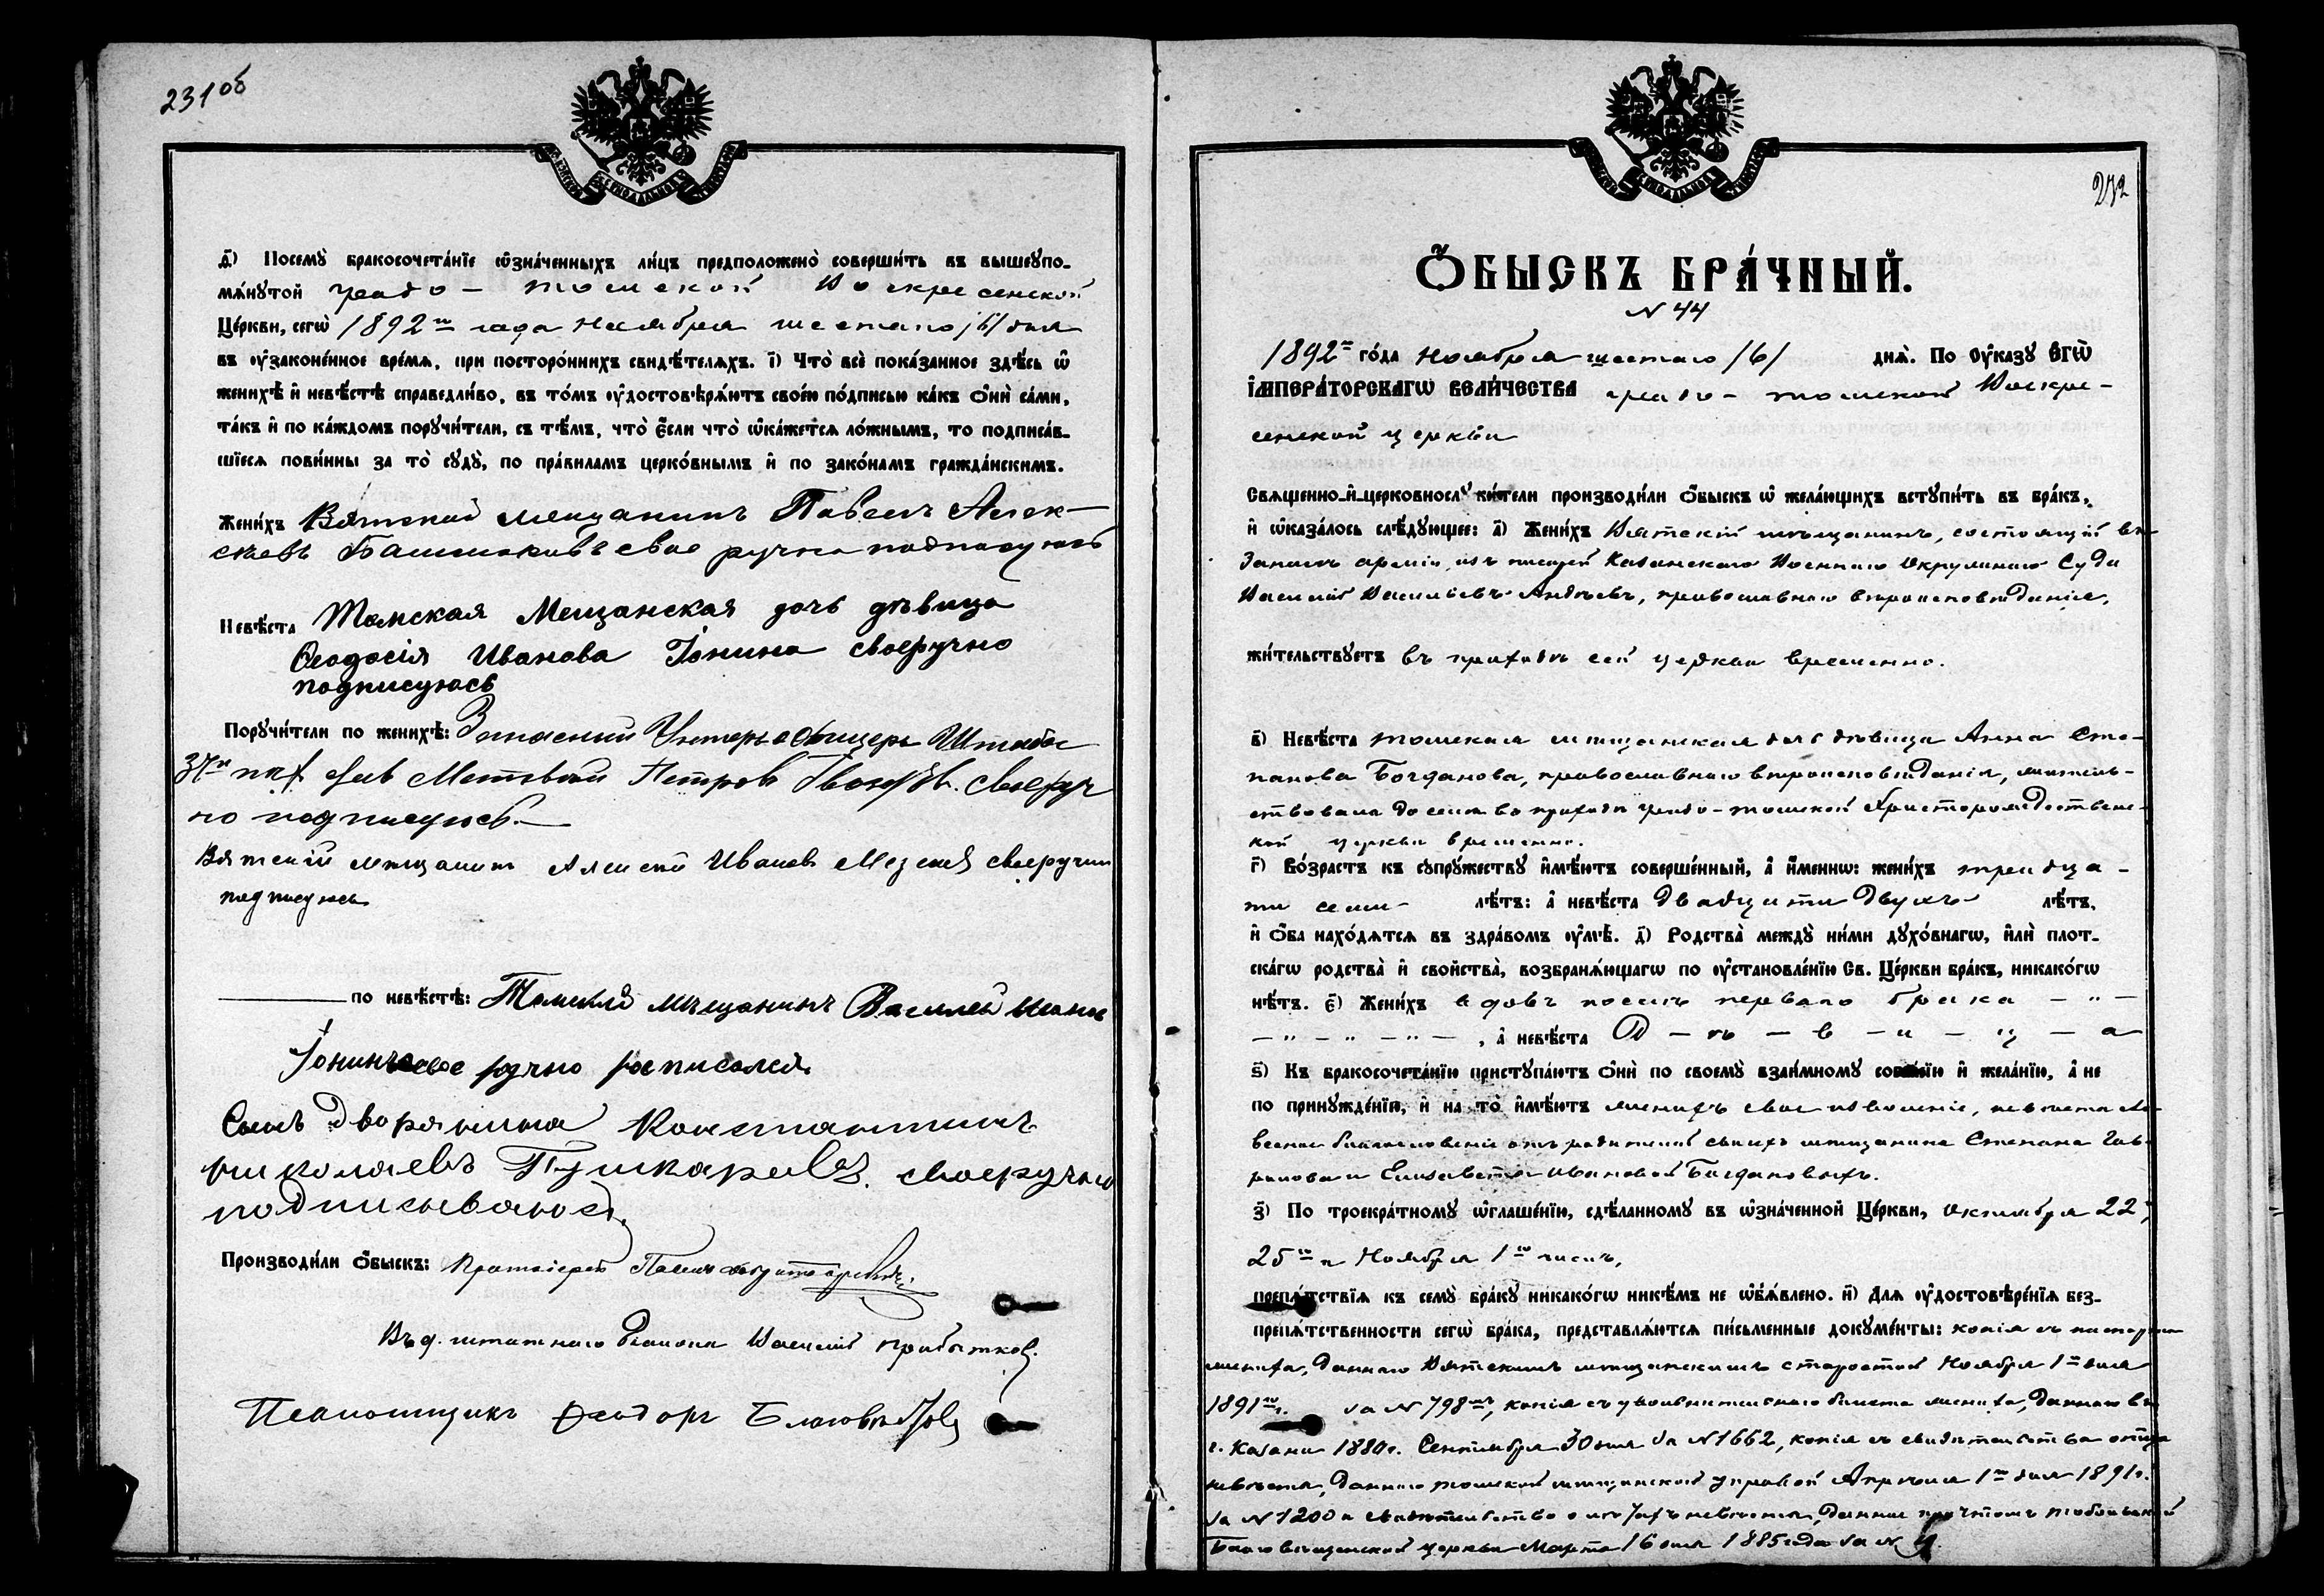 231об
д҃) Посемꙋ̀ бракосочета́нїе ѡ҆зна́ченныхъ ли́цъ предположено̀ соверши́ть въ вышеꙋпо-
мѧ́нꙋтой градо - томской Воскресенской
Це́ркви, сегѡ̀ 1892го года Ноября шестаго /6/ дня
въ ᲂу҆законе́нное вре́мѧ, при посторо́ннихъ свидѣ́телѧхъ. і҃) Что̀ всѐ пока́занное здѣ́сь ѡ҆
женихѣ̀ и҆ невѣ́стѣ справедли́во, въ то́мъ ᲂу҆достовѣрѧ́ютъ свое́ю по́дписью ка́къ ѻ҆нѝ са́ми,
та́къ и҆ по ка́ждомъ порꙋчи́тели, съ тѣ́мъ, что̀ є҆́сли что̀ ѡ҆ка́жетсѧ ло́жнымъ, то подписа́в-
шїесѧ пови́нны за то̀ сꙋдꙋ̀, по пра́виламъ церко́внымъ и҆ по зако́намъ гражда́нскимъ.
Жени́хъ Вятской мещанинъ Павелъ Алек-
сѣевъ Башмаковъ свое ручно подписуюсь
Невѣ́ста Томская Мещанская дочь дѣвица
Ѳеодосія Иванова Іонина своеручно
подписуюсь
Порꙋчи́тели по женихѣ̀: Запасный Унтеръ офицеръ Штаба
Матвѣй Петровъ своеруч
но подписуюсь.
Вятскій мещанинъ Алексѣй Ивановъ своеручно
подписуюсь
по невѣ́стѣ: Томский мѣщанинъ Василей Иванов
Іонинъ свое ручно росписался
Сынъ дворянина Константинъ
николаевъ Пушкаревъ. своеручно
подписываюсь.
Производи́ли ѻ҆́быскъ: Протоіерей
Въ д. штатнаго діакона Василій Прибытковъ.
Псаломщикъ Феодоръ
232
Ѻ҆́БЫСКЪ БРА́ЧНЫЙ.
N 44
1892го го́да Ноября шестаго /6/ днѧ̀. По ᲂу҆ка́зꙋ Є҆ГѠ̀
І҆МПЕРА́ТОРСКАГѠ ВЕЛИ́ЧЕСТВА градо - томской Воскре-
сенской церкви
Свѧщенно-и҆-церковнослꙋжи́тели производи́ли ѻ҆́быскъ ѡ҆ жела́ющихъ встꙋпи́ть въ бра́къ,
и҆ ѡ҆каза́лось слѣ́дꙋющее: а҃) Жени́хъ Вятскій мѣщанинъ, состоящій въ
Запасѣ арміи, изъ писарей Казанскаго Военнаго Окружнаго Суда
Василій Васильевъ Андѣевъ, православнаго вѣроисповѣданія,
жи́тельствꙋетъ въ приходѣ сей церкви временно.
в҃) Невѣ́ста томская мѣщанская дочь дѣвица Анна Сте-
панова Богданова, православнаго вѣроисповѣданія, житель-
ствовала до селѣ въ приходѣ градо - томской Христорождественс-
кой церкви временно.
г҃) Во́зрастъ къ сꙋпрꙋ́жествꙋ и҆мѣ́ютъ соверше́нный, а҆ и҆́меннѡ: жени́хъ тридца -
ти семи лѣ́тъ: а҆ невѣ́ста двадцати двухъ лѣ́тъ,
и҆ ѻ҆́ба нахо́дѧтсѧ въ здра́вомъ ᲂу҆мѣ̀. д҃) Родства̀ междꙋ̀ ни́ми дꙋхо́внагѡ, и҆лѝ плот-
ска́гѡ родства̀ и҆ свойства̀, возбранѧ́ющагѡ по ᲂу҆становле́нїю Св. Це́ркви бра́къ, никако́гѡ
нѣ́тъ. є҃) Жени́хъ вдовъ послѣ перваго брака - " -
- " - " - " - , а҆ невѣ́ста Д - ѣ - в - и - ц - а
ѕ҃) Къ бракосочета́нїю пристꙋпа́ютъ ѻ҆нѝ по своемꙋ̀ взаи́мномꙋ согла́сїю и҆ жела́нїю, а҆ не
по принꙋжде́нїю, и҆ на то̀ и҆мѣ́ютъ женихъ свое изволеніе, невѣста сло-
весное благословеніе отъ родителей своихъ мѣщанина Степана Гав-
рилова и Елисаветы Ивановой Богдановыхъ.
з҃) По троекра́тномꙋ ѡ҆глаше́нїю, сдѣ́ланномꙋ въ ѡ҆зна́ченной Це́ркви, Октября 22,
25го и Ноября 1го чиселъ,
препѧ́тствїѧ къ семꙋ̀ бра́кꙋ никако́гѡ никѣ́мъ не ѡ҆б̾ѧ́влено. и҃) Длѧ ᲂу҆достовѣре́нїѧ без-
препѧ́тственности сегѡ̀ бра́ка, представлѧ́ютсѧ пи́сьменные докꙋме́нты: копія съ паспорта
жениха, даннаго Вятскимъ мѣщанскимъ старостой Ноября 1го дня
1891го г. за N 798мъ, копія съ увольнительнаго билета жениха, даннаго въ
г. Казани 1880г. Сентября 30 дня за N 1662, копія съ свидѣтельства отца
невѣсты, даннаго томской мѣщанской управой Апрѣля 1го дня 1891г.
за N 1200 и свидѣтельство о лѣтахъ невѣсты, данное причтомъ тобольской
Благовѣщенской церкви Марта 16 дня 1885 года за N 9.